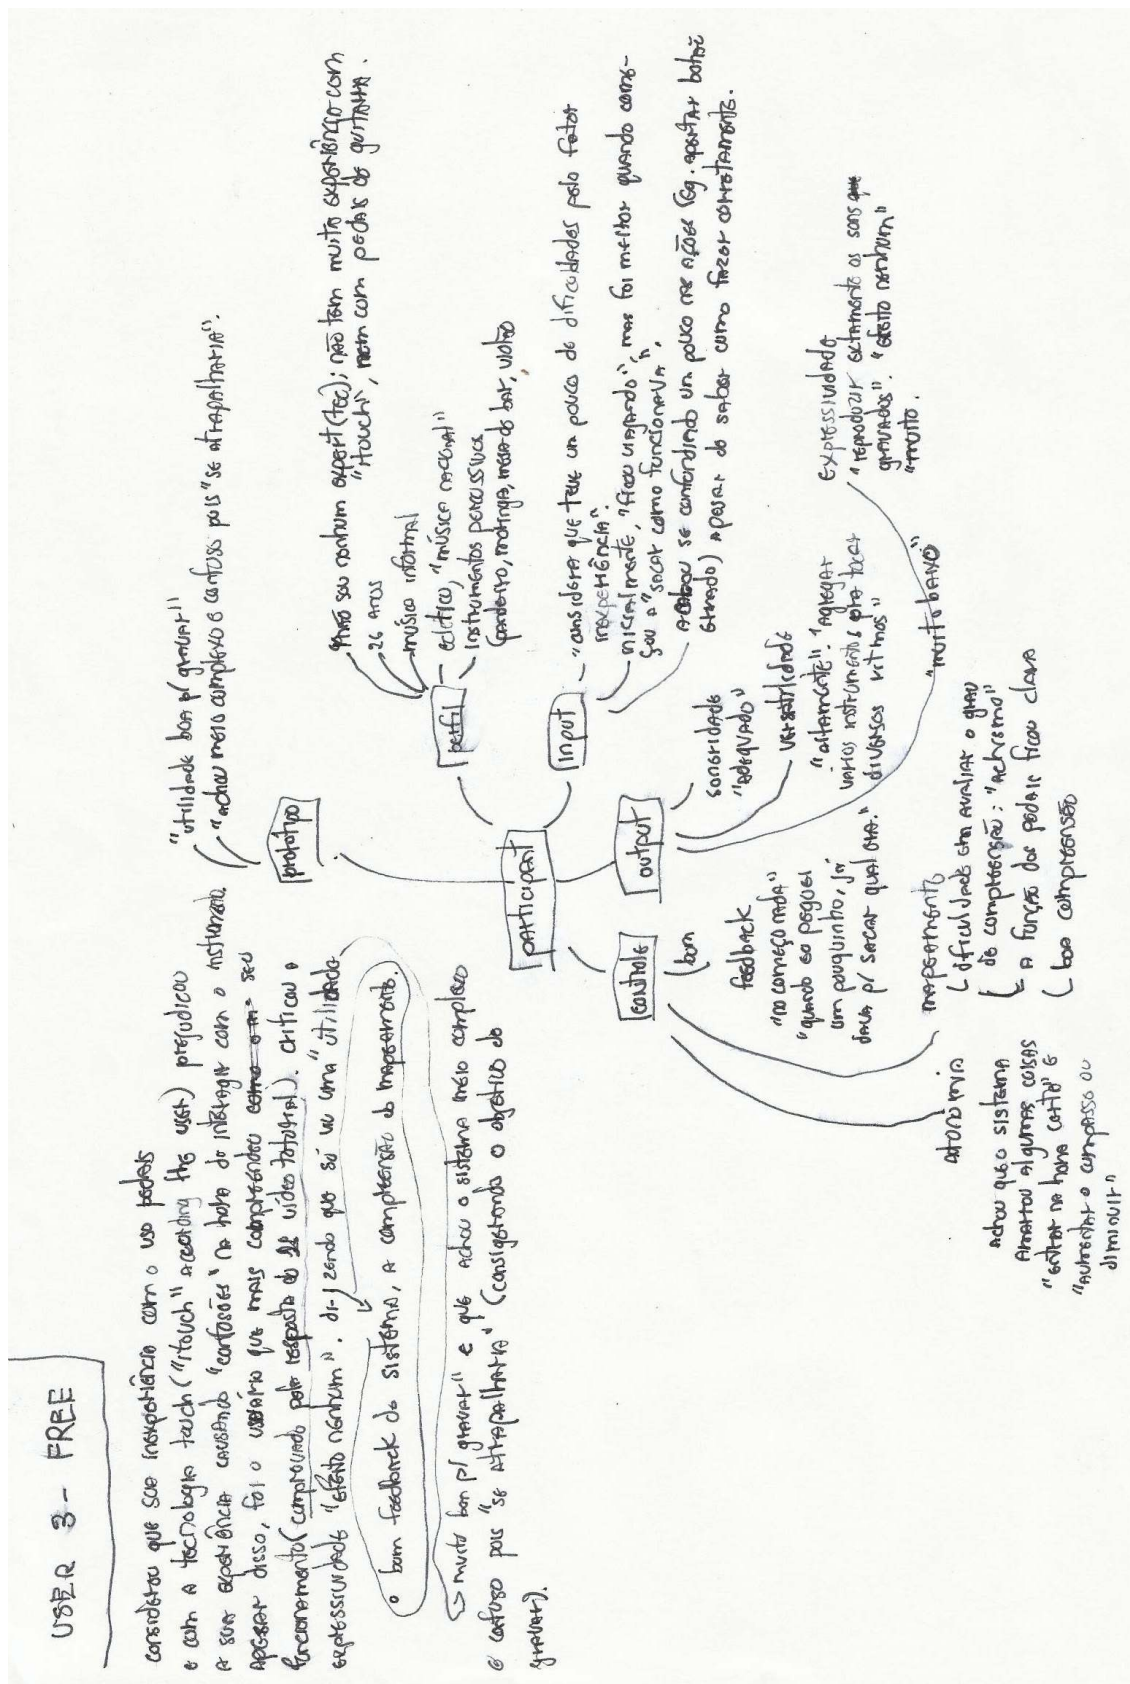 USER 3 - FREE
considerou que sua inexperiência com o uso pedais
e com a tecnologia touch ("itouch" according the user) prejudicou
a sua experiência causando "confusões" na hora de interagir com o instrumento.
apesar disso, foi o usuário que mais compreendeu seu
funcionamento (comprovado pela resposta do vídeo tutorial). criticou a
expressividade "efeito nenhum". dizendo que só viu uma "utilidade
• bom feedback do sistema, a compreensão do mapeamento.
→ muito bom p/ gravar" e que achou o sistema meio complexo
e confuso pois "se atrapalharia" (considerando o objetivo de
gravar).
participant
protótipo
"utilidade boa p/ gravar"
"achou meio complexo e confuso pois "se atrapalharia".
perfil
"não sou nenhum expert (tec); não tem muita experiência com
"itouch", nem com pedais de guitarra.
26 anos
músico informal
eclético, "música nacional"
instrumentos percussivos
(pandeiro, moringa, mesa de bar, violão
input
"considera que teve um pouco de dificuldades pelo fator
inexperiência".
inicialmente, "ficou viajando", mas foi melhor quando come-
çou a "sacar como funcionava",
acabou se confundindo um pouco nas ações (eg. apertar botão
errado) apesar de saber como fazer corretamente.
output
sonoridade
"adequado"
versatilidade
"altamente". "agregar
vários instrumentos pra tocar
diversos ritmos"
expressividade
"reproduzir exatamente os sons
gravados". "efeito nenhum"
"muito.
"muito baixo"
controle
bom
feedback
"no começo nada"
"quando eu peguei
um pouquinho, já
dava p/ sacar qual era."
mapeamento
dificuldade em avaliar o grau
de compreensão: "achismo"
a função dos pedais ficou clara
boa compreensão
autonomia
achou que o sistema
amarrou algumas coisas
"entrar na hora certa" e
"aumentar o compasso ou
diminuir"